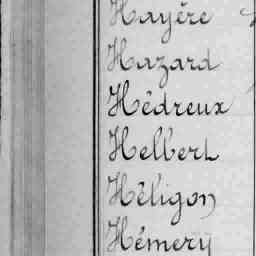 Hayère
Hazard
Hédreux
Helbert
Héligon
Hémery